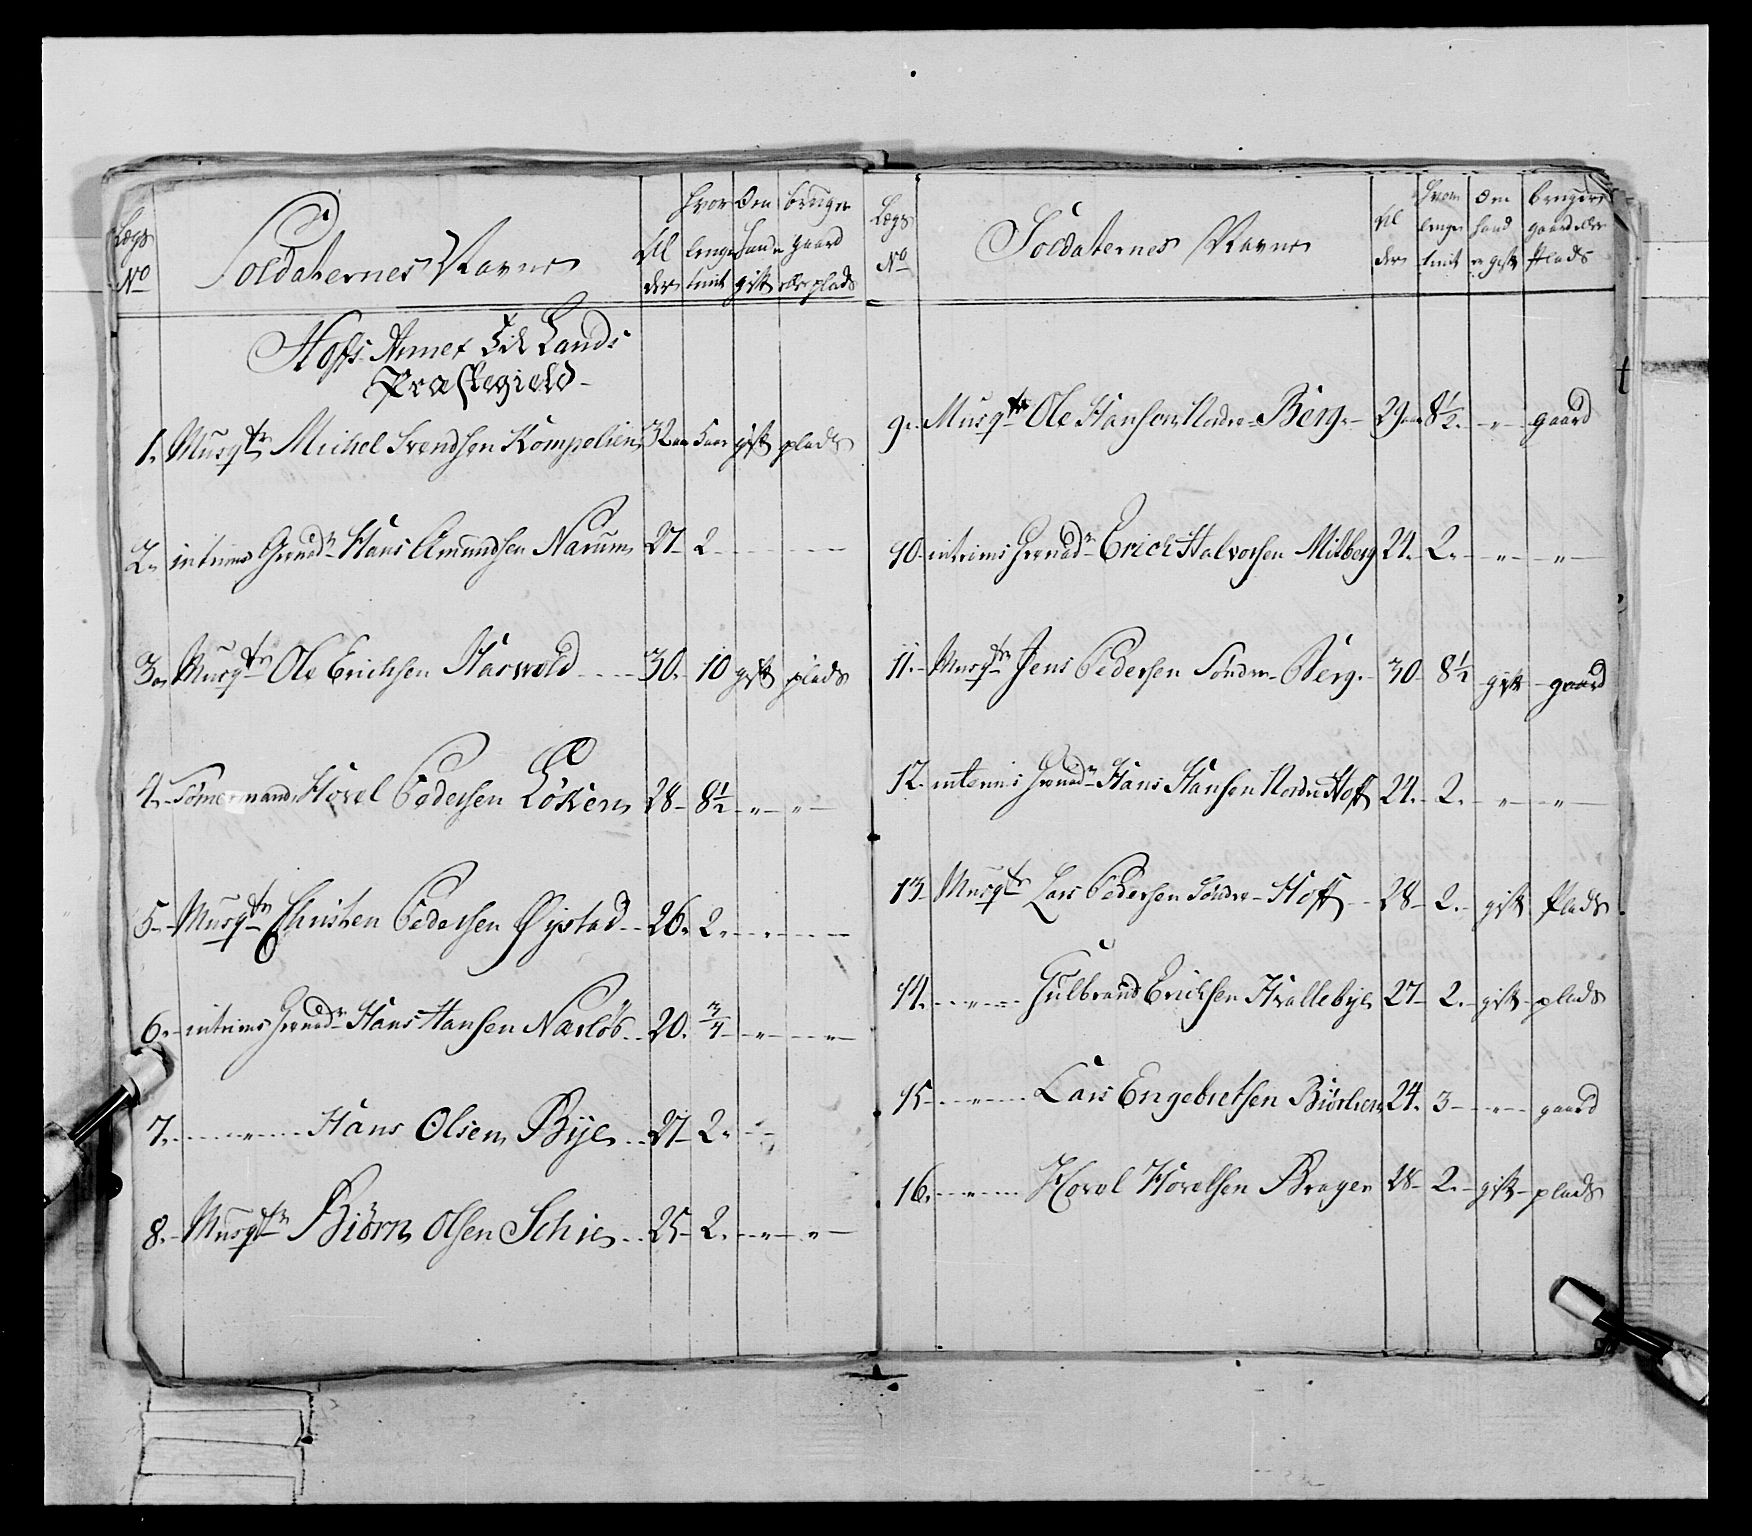 Lægs No Soldaternes Navne Al der hvor lenge tient Om Hand gift bruger gaard eller plads
Hofs Annex til Lands
Præstegield
1. Musqtr Michel Svendsen Kompelien 32 aar 5 aar gift plads
2. intrims Grenadr Hans Amundsen Narum 27 2
3. Musqtr Ole Erichsen Haswold 30. 10 gift plads
4. Tömermand Hovel Pedersen Löken 28 8½ " "
5. Musqtr Christen Pedersen Øystad 26. 2.
6. intrims Grenadr Hans Hansen Narlöb 20. ¾ " "
7. " Hans Olsen Bye 27 2.
8. Musqtr Biörn Olsen Schie 25 2. " "
Lægs No Soldaternes Navne Al der hvor lenge tient Om Hand er gift bruger gaard eller Plads
9. Musqtr Ole Hansen Nordre Berg 29 aar 8½. " gaard
10 intrims Grenadr Erich Halvorsen Milberg 24. 2. " "
11. Musqtr Jens Pedersen Söndre Berg. 30 8½ gift gaard
12. interims Grenadr Hans Hansen Nordre Hoff 24. 2. " "
13 Musqtr Lars Pedersen Söndre Hoff 28 2. gift Plads
14. " Gulbrand Erichsen Hvallebye 27 2. gift plads
15 " Lars Engebretsen Biörlien 24. 3 " gaard
16. " Hovel Hovelsen Brager 28 2. gift plads